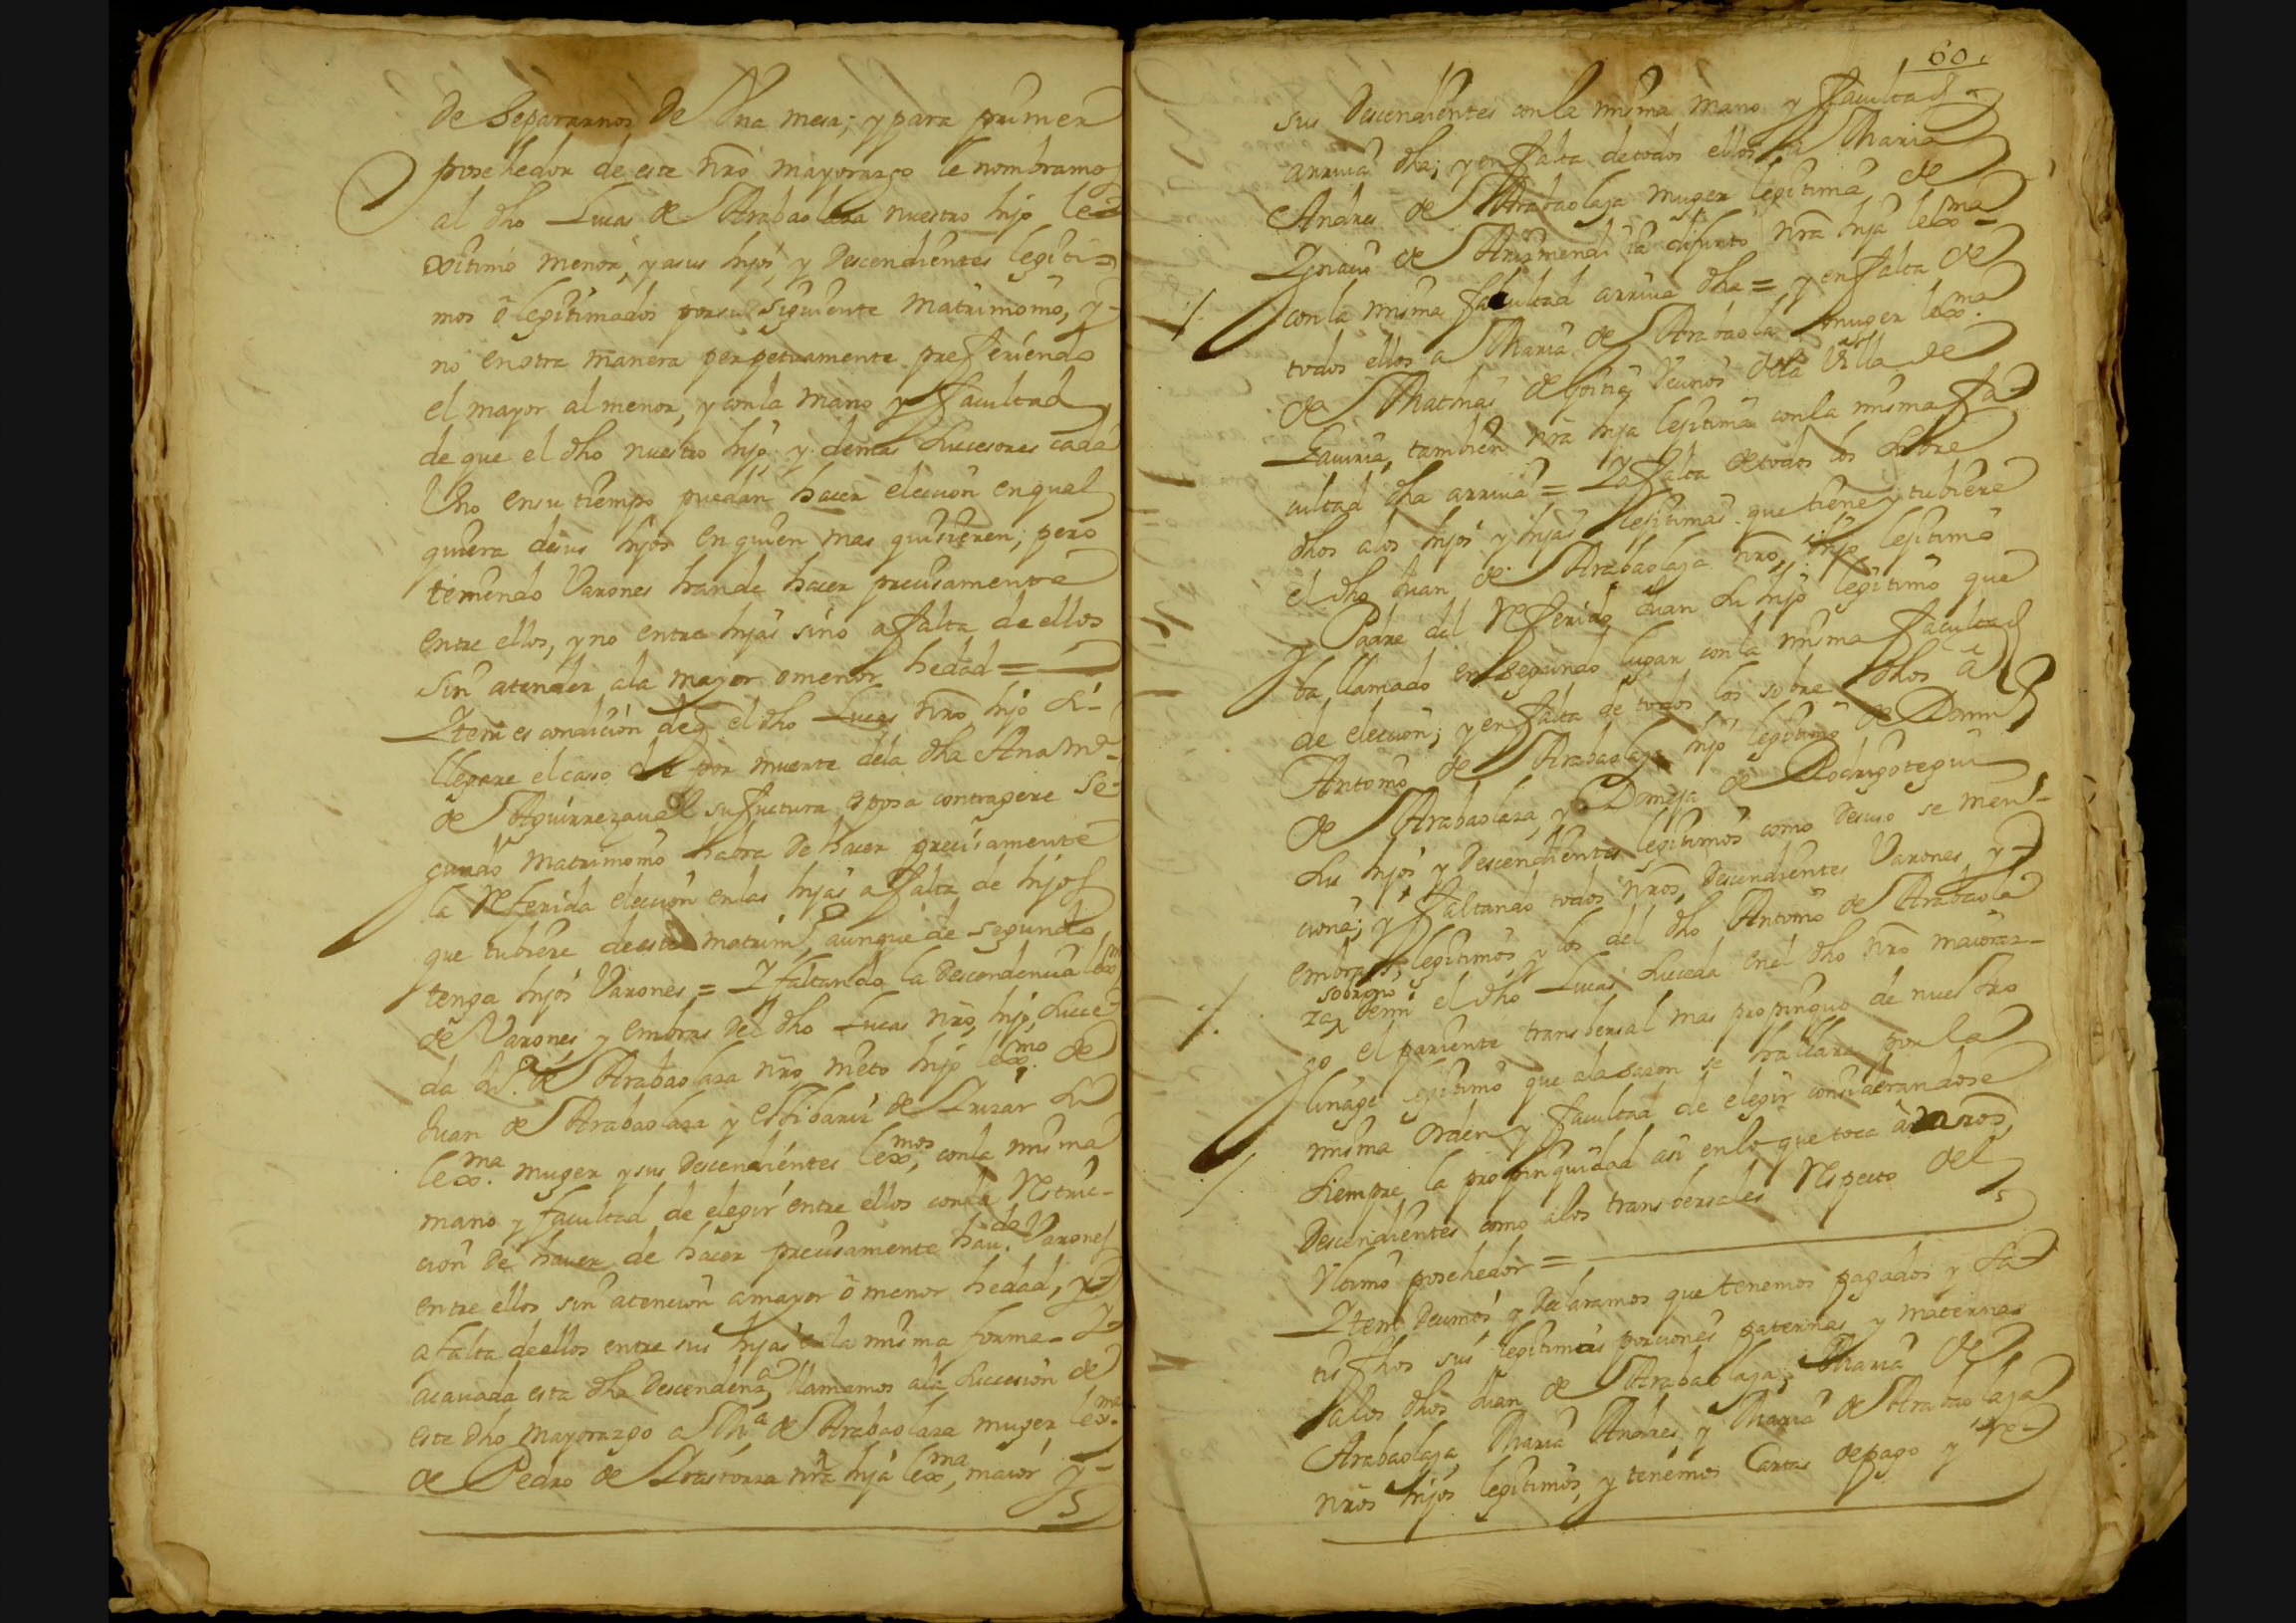 de Separarnos de Una mesa; y para primer
posehedor de este nrō mayorazgo le nombramos
al dho Lucas de Arabaolaza nuestro hijo le-
xitimo menor, y a sus hijos, y Descendientes legiti-
mos o legitimados por su siguiente Matrimonio, y
no en otra manera perpetuamente prefiriendo
el mayor al menor, y con la mano y facultad
de que el dho nuestro hijo y demas Succesores cada
Uno en su tiempo puedan hacer eleccion en qual
quiera de sus hijos en quien mas quisieren; pero
teniendo Varones han de hacer precisamente
entre ellos, y no entre hijas sino a falta de ellos
sin atender a la mayor o menor hedad =
Item es condicion de q̃ el dho Lucas nrō hijo Si-
llegare el caso de q̃ por muerte de la dha Ana Mª
de Aguirrezaual su fuctura esposa contragere se-
gundo Matrimonio habra de hacer precisamente
la Referida eleccion en las hijas a falta de hijos
que tubiere de este matrimº, aunque de segundo
tenga hijos Varones = Y faltando la Descendencia lexmª
de Varones y embras del dho Lucas nrō hijo Succe
da de Arabaolaza nrō nieto hijo lexmo de
Juan de Arabaolaza y Estibariz de Luzar Su
lexma. muger y sus Descendientes lexmos, con la misma
mano y facultad de elegir entre ellos con la Restric-
cion de hauer de hacer precisamente haude. Varones
entre ellos sin atencion a mayor o menor hedad, y
a falta de ellos entre sus hijas en la misma forma. Y
acauada esta dha Descendena, llamamos a la Succesion de
este dho mayorazgo a Mª de Arabaolaza muger lexma.
de Pedro de Yrastorza nrā hija lexma, maior y
60.
sus Descendientes con la misma mano y facultad
arriua dha; y en falta de todos ellos a Maria
Andres de Arabaolaza muger legitima de
Ygnacio de Arizmendi ia difunto nrā hija lexma
con la misma facultad arriua dha = y en falta de
todos ellos a Maria de Arabaolaza muger lexma.
de Mathias de Goitia, Vecinos de la Villa de
Zauiria, tambien nrā hija lexitima con la misma fa-
cultad dha arriua = Y a falta de todos los Sobre
dhos a los hijos y hijas lexitimas que tiene y tubiere
el dho Juan de Arabaolaza nrō, hijo lexitimo
y Padre del Referido Juan Su hijo legitimo que
ba llamado en segundo lugar con la misma facultad
de eleccion; y en falta de todos los sobre dhos a
Antonio de Arabaolaza hijo legitimo de Domin
de Arabaolaza, y Domeja de Rodrigotegui
Sus hijos y Descendientes legitimos como Desuso se men-
ciona; y faltando todos nrōs, Descendientes Varones y
embras, legitimos y los del dho Antonio de Arabaola
sobrino
za, Deni el dho Lucas Succeda en el dho nrō maioraz-
go el pariente transbersal mas propinquo de nuestro
linage legitimo que a la sazon se hallara por la
misma Orden y facultad de elegir considerandose
Siempre la propinquidad asi en lo que toca a nrōs,
Descendientes como a los transbersales Respecto del
Vltimo posehedor =
Item Decimos, y Declaramos que tenemos pagados y Sa-
tisfhos sus legitimas porciones paternas y maternas
a los dhos Juan de Arabaolaza, Maria de
Arabaolaza, Maria Andres, y Maria de Arabaolaza
nrōs hijos legitimos, y tenemos Cartas de pago y Re-